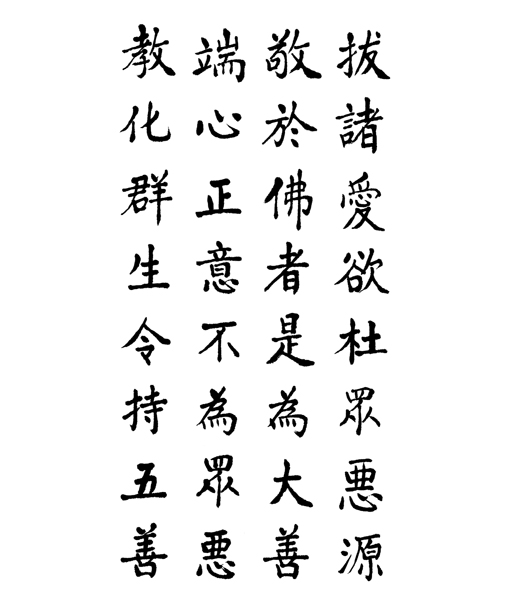 拔諸愛欲杜眾悪源
敬於佛者是為大善
端心正意不為眾悪
教化群生令持五善